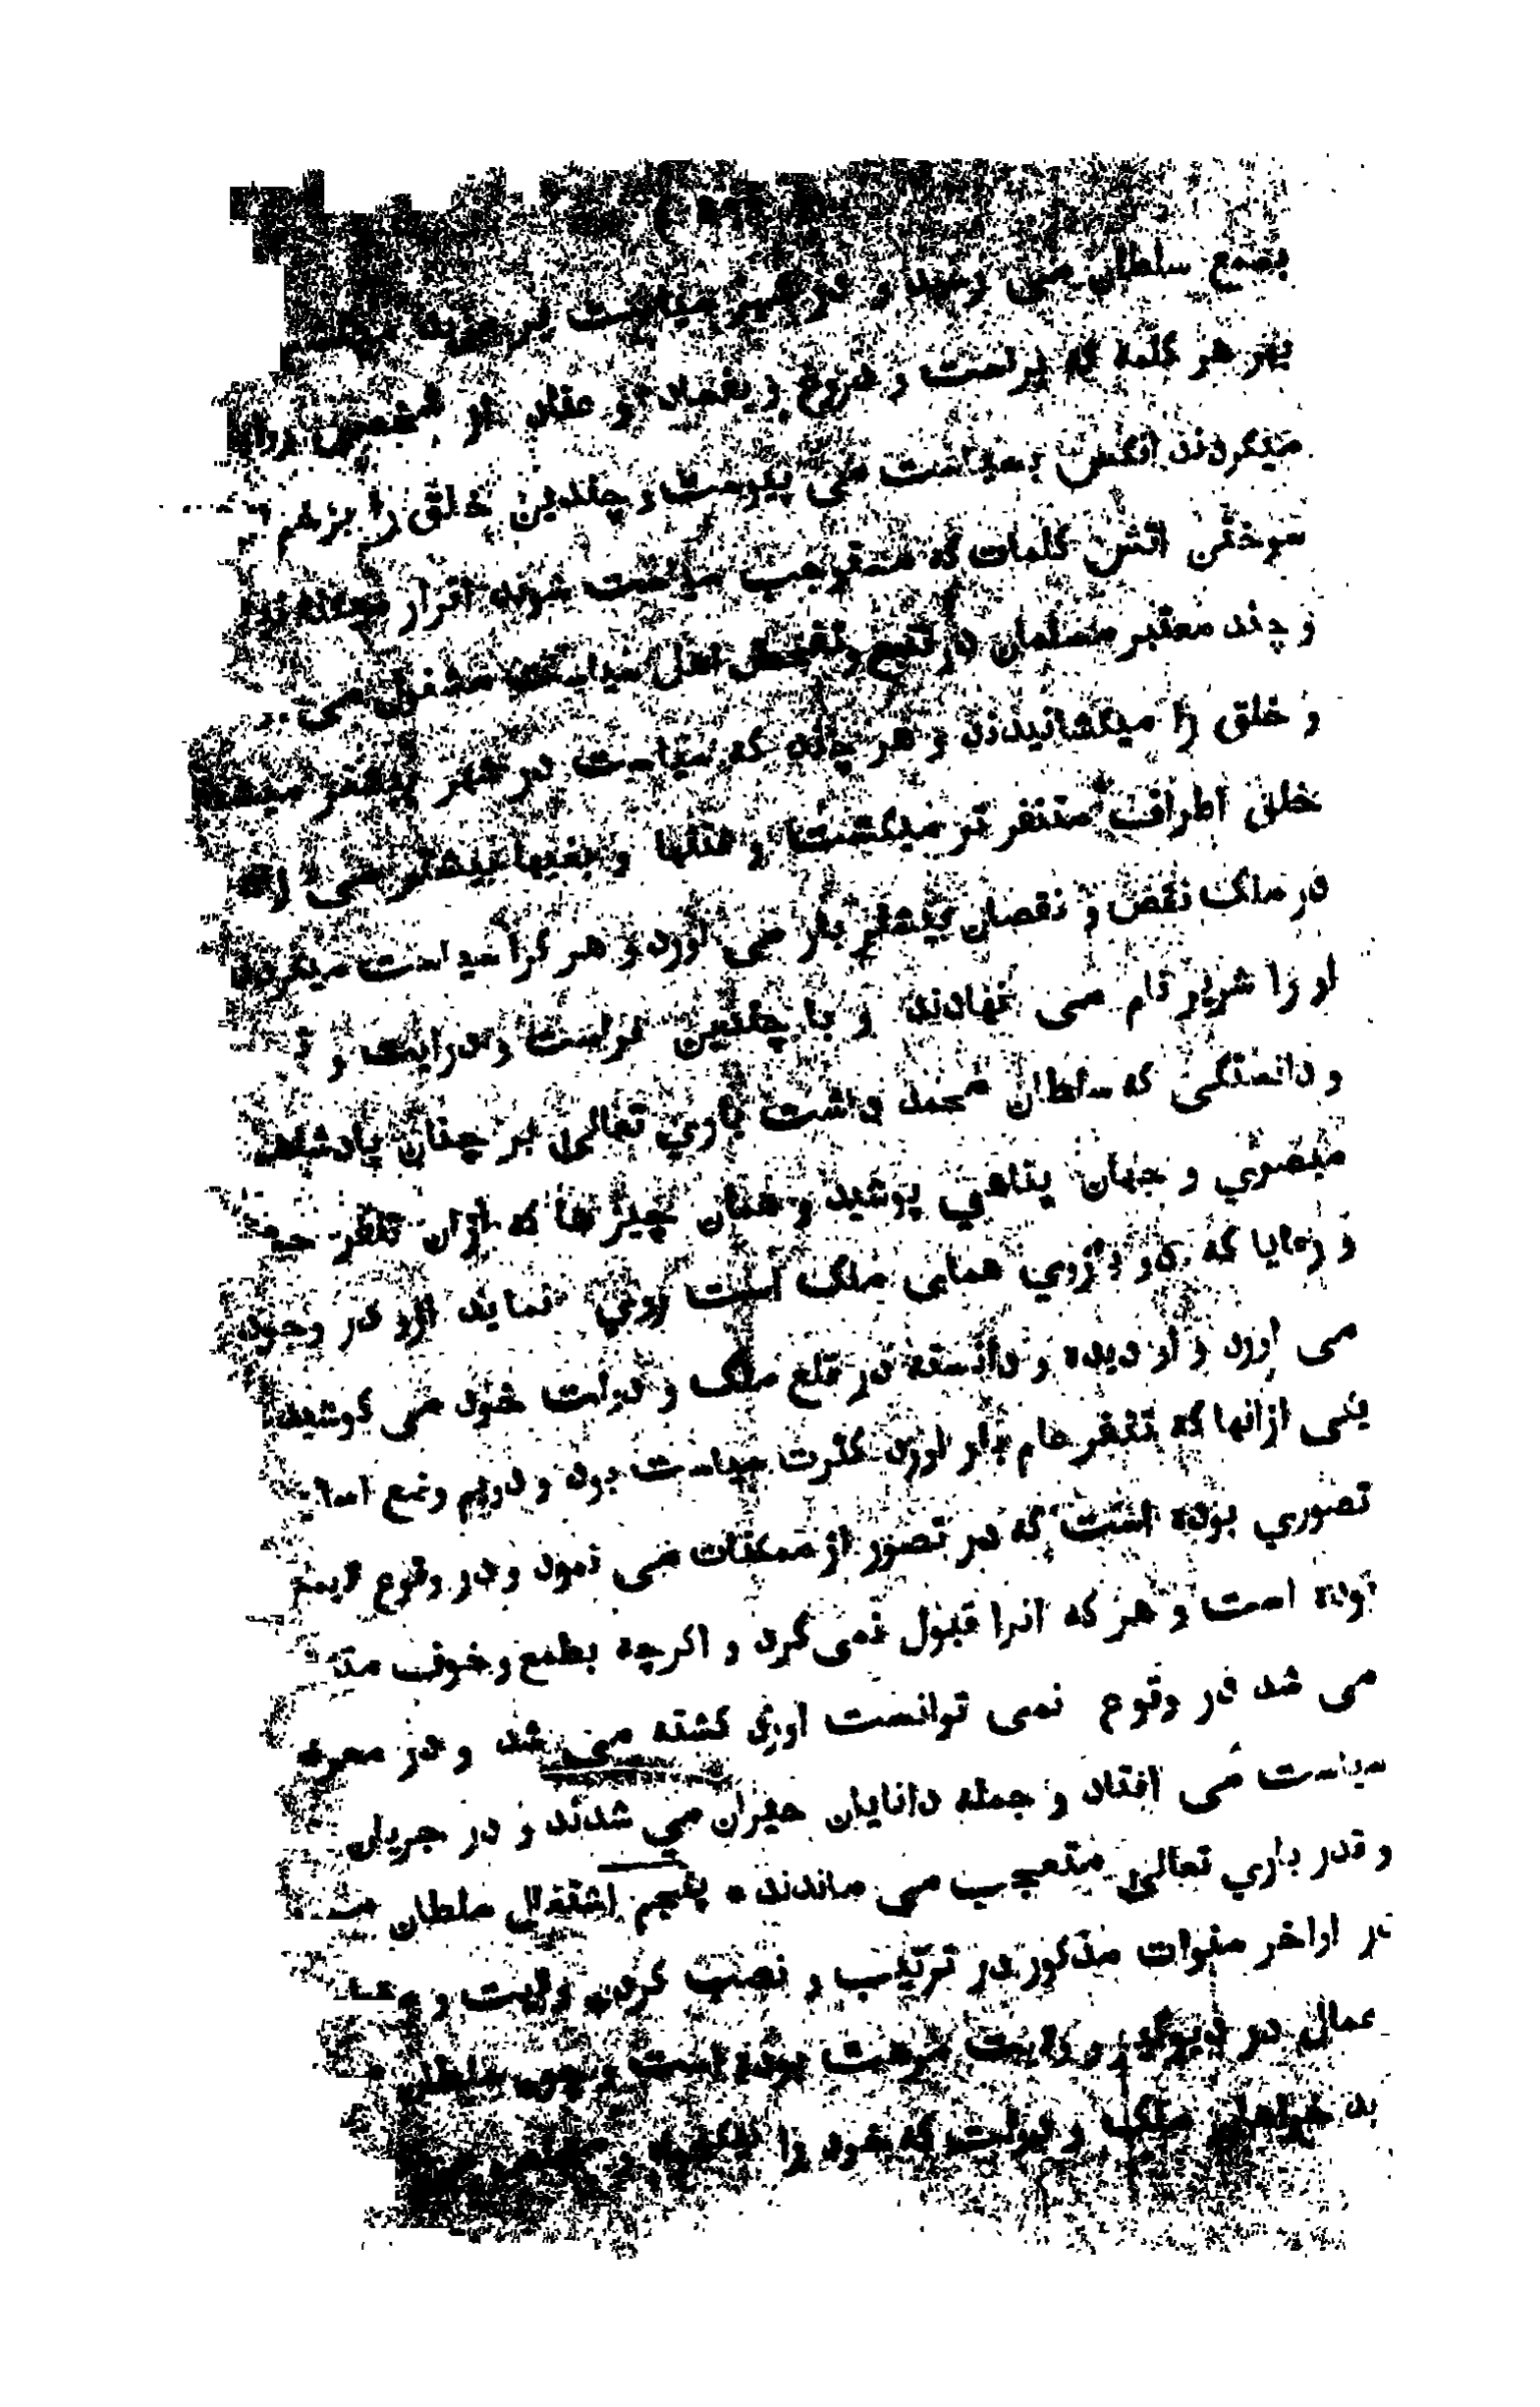 بسمع سلطان می رسید و در شهر سیاست بر مزید
بهر هر کلمه که براست و دروغ و بفساد و عناد از شخصی روا
میکردند انکس بسیاست می پیوست و چندین خلق را بزخم
سوختن اتش کلمات که مستوجب سیاست شوند اقرار
و چند معتبر مسلمان در تتبع و تفحص اهل سیاست مشغول می
و خلق را میکشانیدند و هر چند که سیاست در شهر بیشتر میشد
خلق اطراف متنفر تر میکشت و فتنها و بغیها بیشتر می زاد
در ملک نقص و نقصان بیشتر بار می اورد و هر کرا سیاست میکردند
او را شریر نام می نهادند و با چندین فراست و درایت و
و دانستگی که سلطان محمد داشت باری تعالی بر چنان پادشاه
مبصری و جهان پناهی پوشید و همان چیز ها که ازان تنفر
و رعایا که دو بازوی همای ملک است روی نماید ازو در وجود
می اورد و او دیده و دانسته در قلع ملک و دولت خود می کوشید
یکی ازانها که تنفر عام بار اورد کثرت سیاست بود و دویم وضع
تصوری بوده است که در تصور از ممکنات می نمود و در وقوع
بوده است و هر که انرا قبول نمی کرد و اکرچه بطمع و خوف
می شد در وقوع نمی توانست اورد کشته می شد و در معرض
سیاست می افتاد و جمله دانایان حیران می شدند و در جریان
و قدر باری تعالی متعجب می ماندند * پنجم اشتغال سلطان
در اواخر سنوات مذکور در ترتیب و نصب کردن ولایت و
عمال در دیوگیر و ولایت مرهت بوده است و چون سلطان
بد خواهان ملک و دولت که خود را نیکخواه و